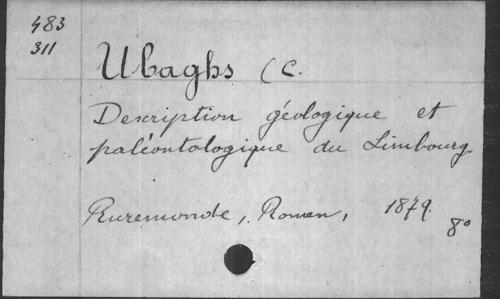 483
311
Ubaghs (C.
Description géologique et
paléontologique du Limbourg.
Ruremonde, Romen, 1879.
8°